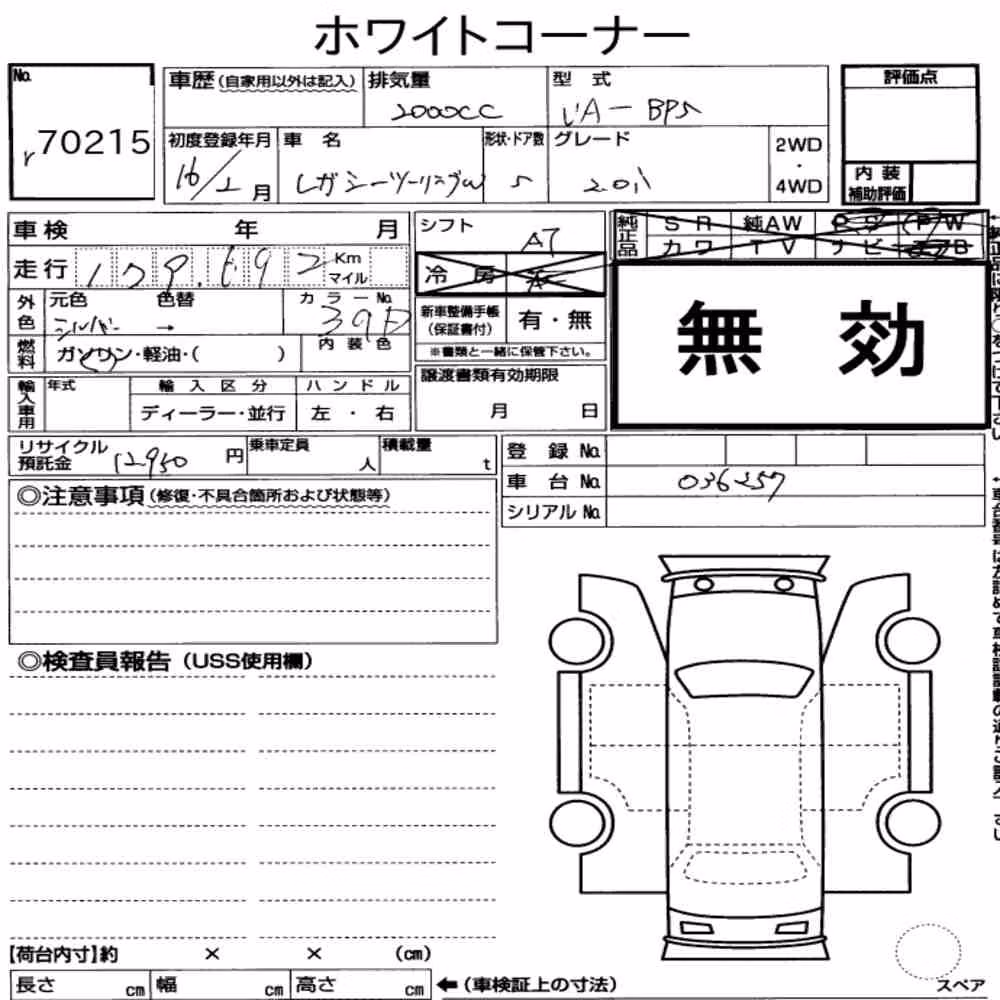 ホワイトコーナー
No.
70215
車歴(自家用以外は記入)
排気量
2000CC
型 式
UA-BP5
評価点
初度登録年月
16/2月
車 名
レガシーツーリングW
形状・ドア数
5
グレード
2.0i
2WD
・
4WD
内 装
補助評価
車検 年 月
シフト
AT
純正品
SR 純AW PS PW
カワ TV ナビ エアB
走行
179,692
Km
マイル
冷 房
無 効
外色
元色 色替
シルバー →
カラーNo.
39D
内 装 色
新車整備手帳
(保証書付)
有・無
※書類と一緒に保管下さい。
燃料
ガソリン・軽油・( )
譲渡書類有効期限
月 日
輸入車用
年式
輸 入 区 分
ディーラー・並行
ハ ン ド ル
左 ・ 右
リサイクル
預託金
12,950
円
乗車定員
人
積載量
t
登 録 No.
車 台 No.
036257
シリアル No.
◎注意事項(修復・不具合箇所および状態等)
◎検査員報告(USS使用欄)
【荷台内寸】約 × × (cm)
長さ cm
幅 cm
高さ cm
←(車検証上の寸法)
スペア